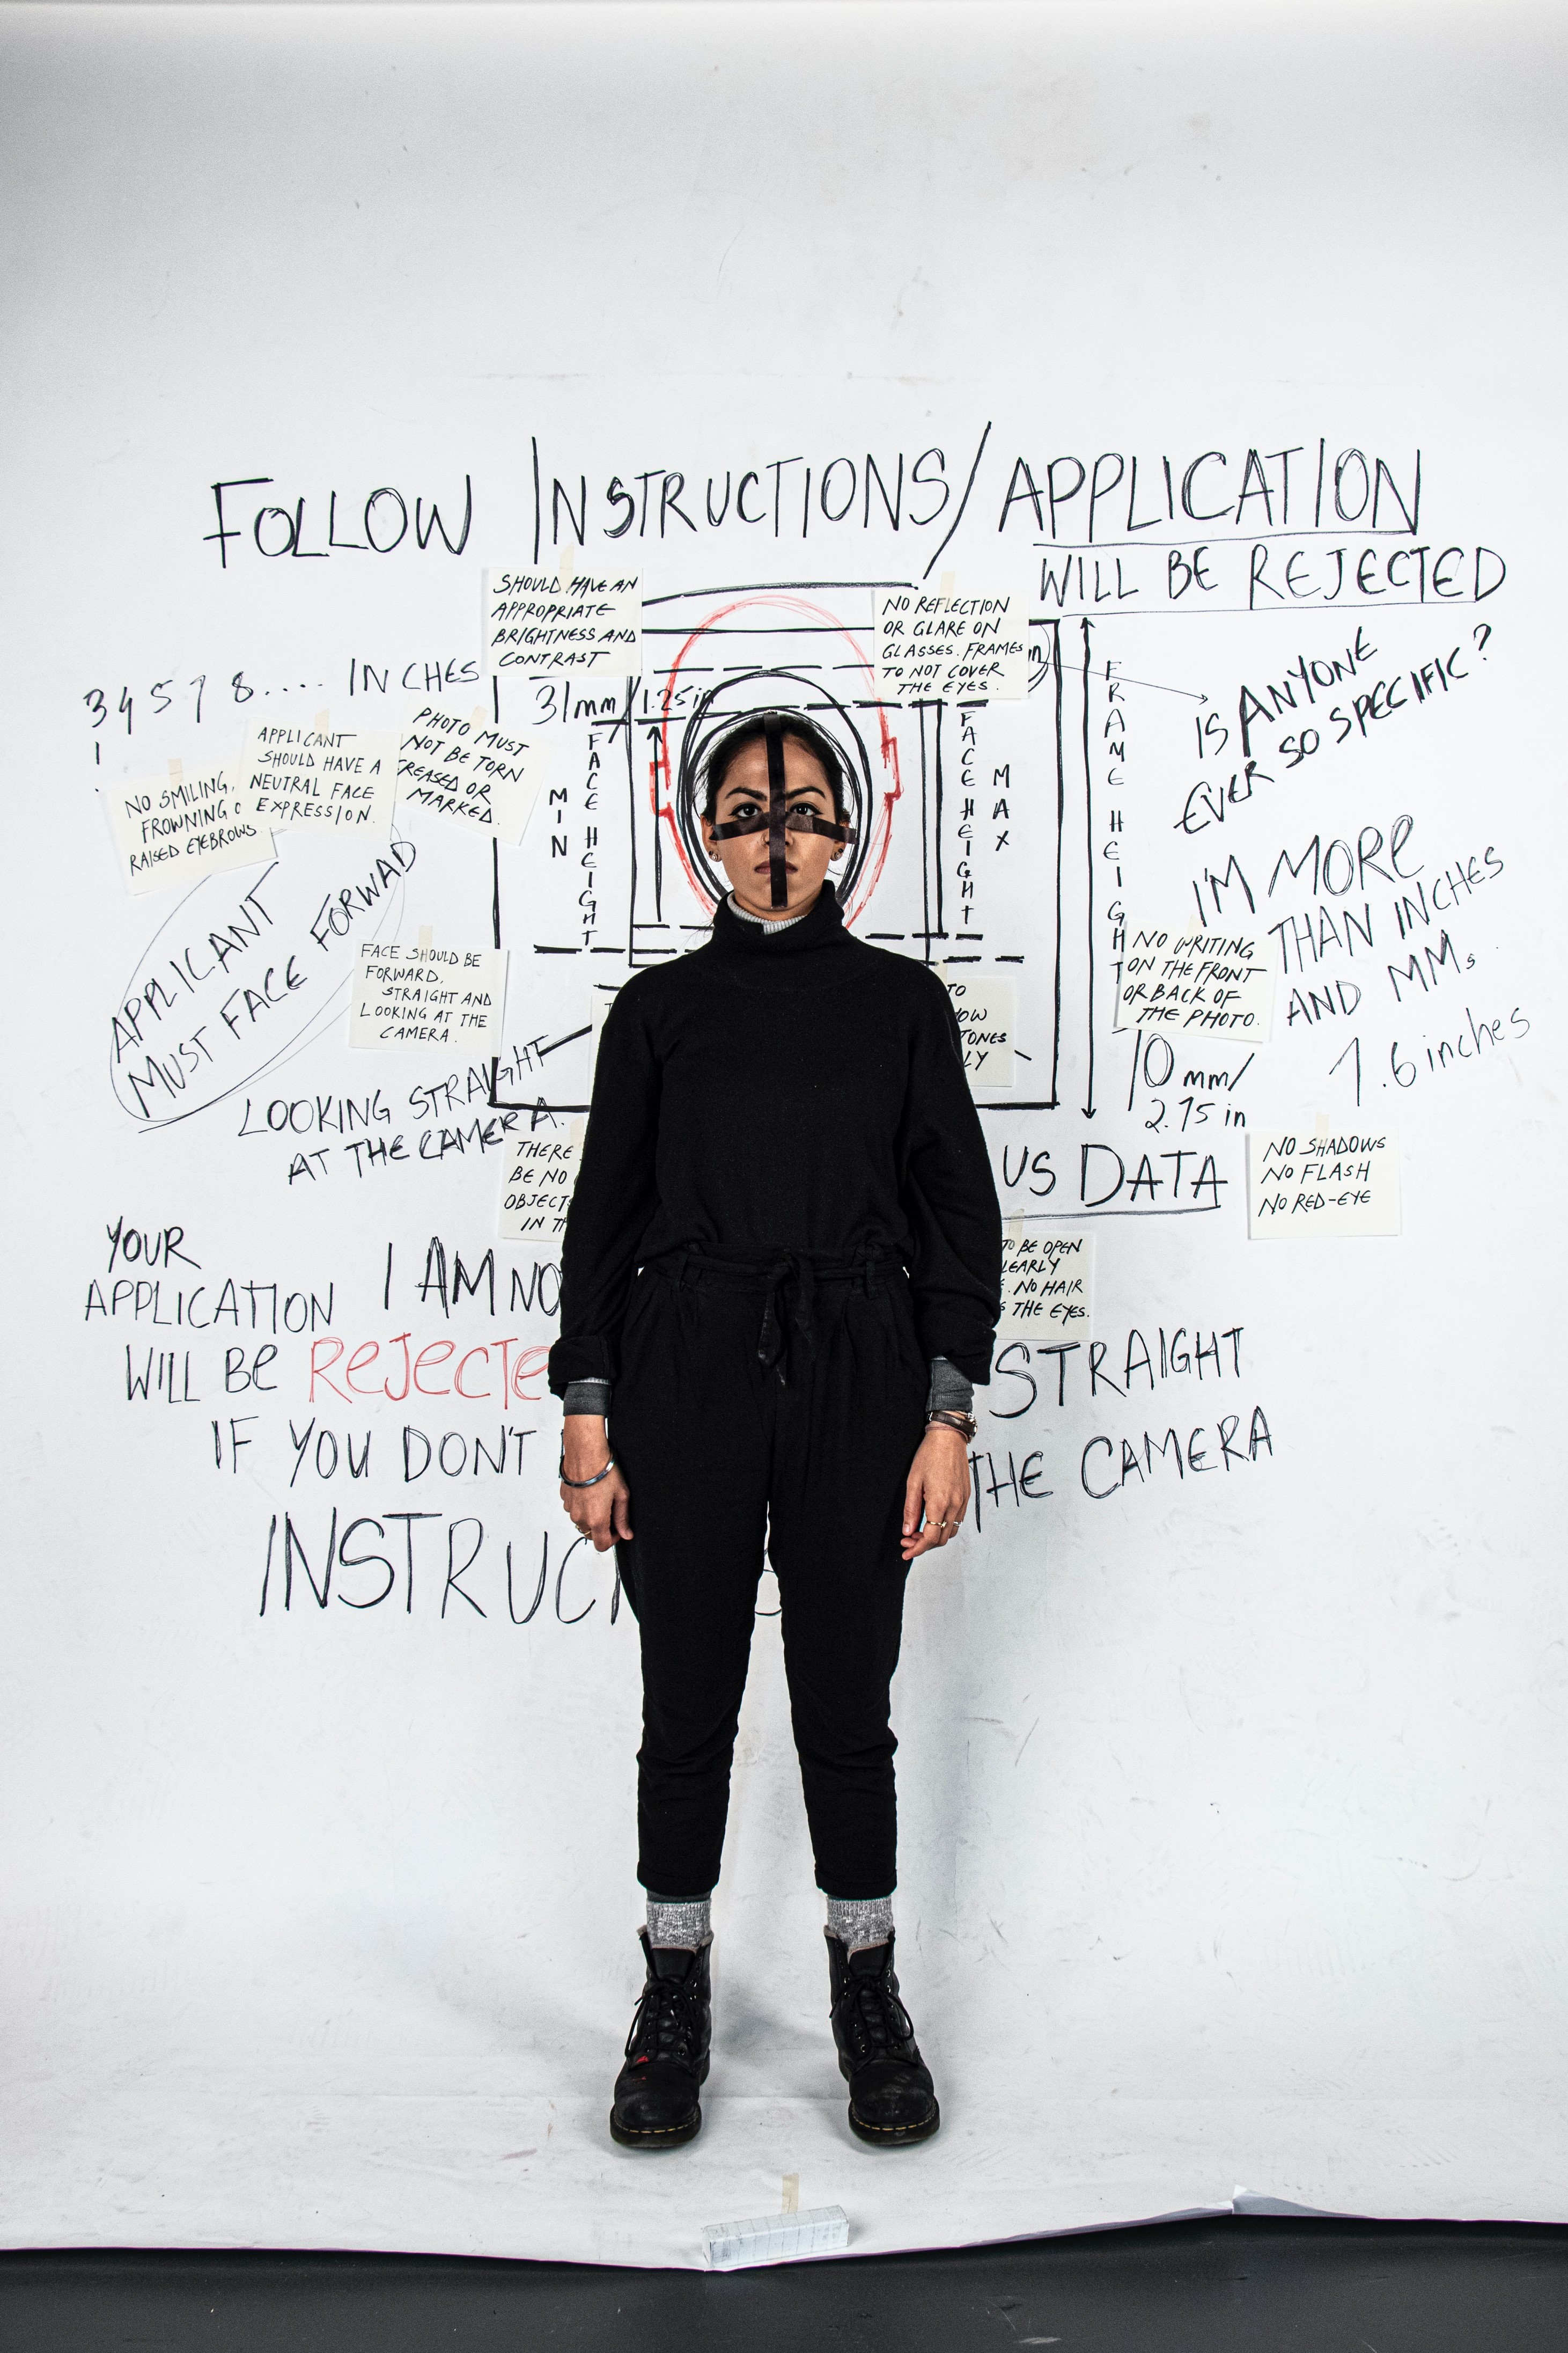 FOLLOW INSTRUCTIONS/APPLICATION
WILL BE REJECTED
SHOULD HAVE AN
APPROPRIATE
BRIGHTNESS AND
CONTRAST
NO REFLECTION
OR GLARE ON
GLASSES. FRAMES
TO NOT COVER
THE EYES.
IS ANYONE
EVER SO SPECIFIC?
3 4 5 7 8.... INCHES
31mm/1.25in
PHOTO MUST
NOT BE TORN
CREASED OR
MARKED.
APPLICANT
SHOULD HAVE A
NEUTRAL FACE
EXPRESSION.
NO SMILING,
FROWNING O
RAISED EYEBROWS.
MIN
FACE HEIGHT
FACE HEIGHT
MAX
FRAME HEIGHT
I'M MORE
THAN INCHES
AND MMs
APPLICANT
MUST FACE FORWAD
FACE SHOULD BE
FORWARD,
STRAIGHT AND
LOOKING AT THE
CAMERA.
NO WRITING
ON THE FRONT
OR BACK OF
THE PHOTO.
TO
OW
TONES
LY
LOOKING STRAIGHT
AT THE CAMERA.
70 mm/
2.75 in
1.6 inches
THERE
BE NO
OBJECT
IN TH
US DATA
NO SHADOWS
NO FLASH
NO RED-EYE
TO BE OPEN
LEARLY
. NO HAIR
THE EYES.
YOUR
APPLICATION
WILL BE REJECTE
IF YOU DON'T
INSTRUC
I AM NO
STRAIGHT
THE CAMERA